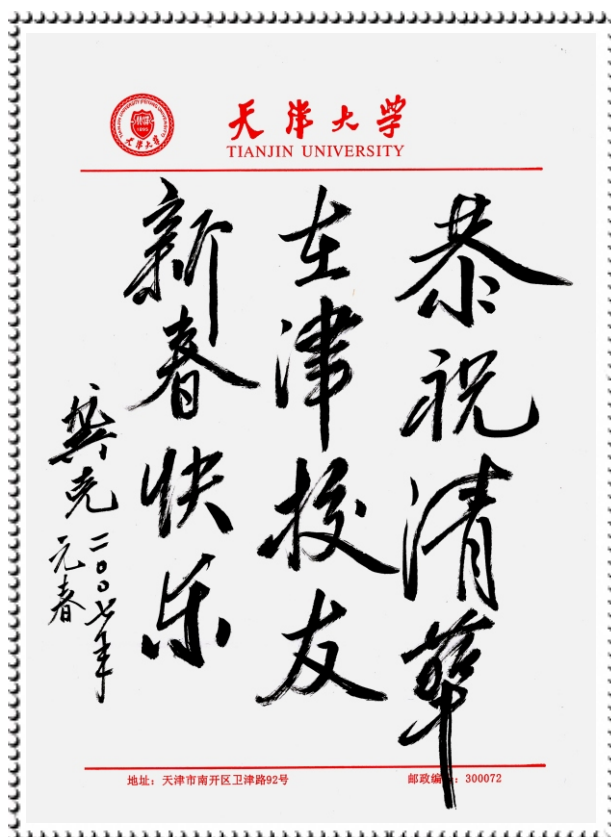 天津大学
TIANJIN UNIVERSITY
恭祝清华
在津校友
新春快乐
龚克
二〇〇七年
元春
地址：天津市南开区卫津路92号
邮政编：300072